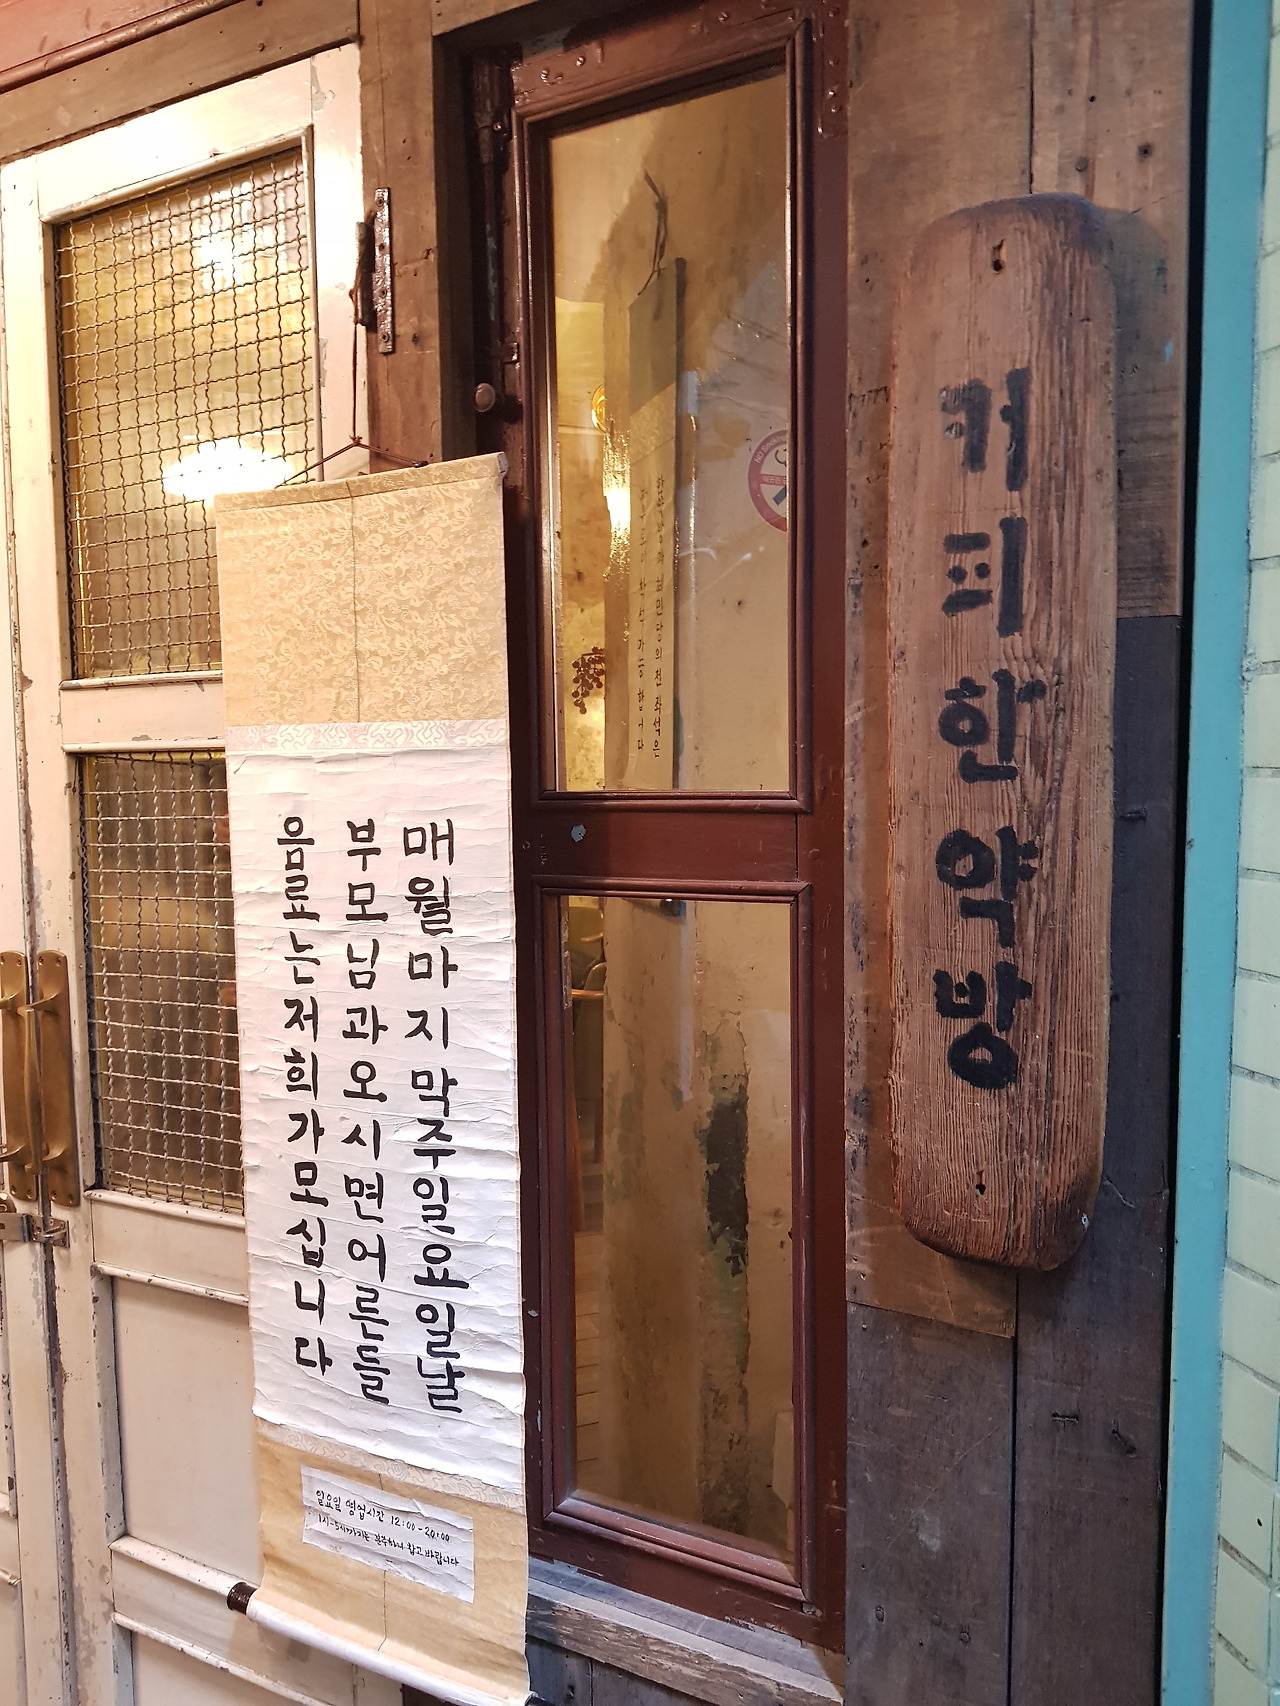 커피한약방
매월마지막주일요일날
부모님과오시면어른들
음료는저희가모십니다
일요일 영업시간 12:00-20:00
1시-5시까지는 분주하니 참고바랍니다
좌석은
가능합니다
NO SMOKING